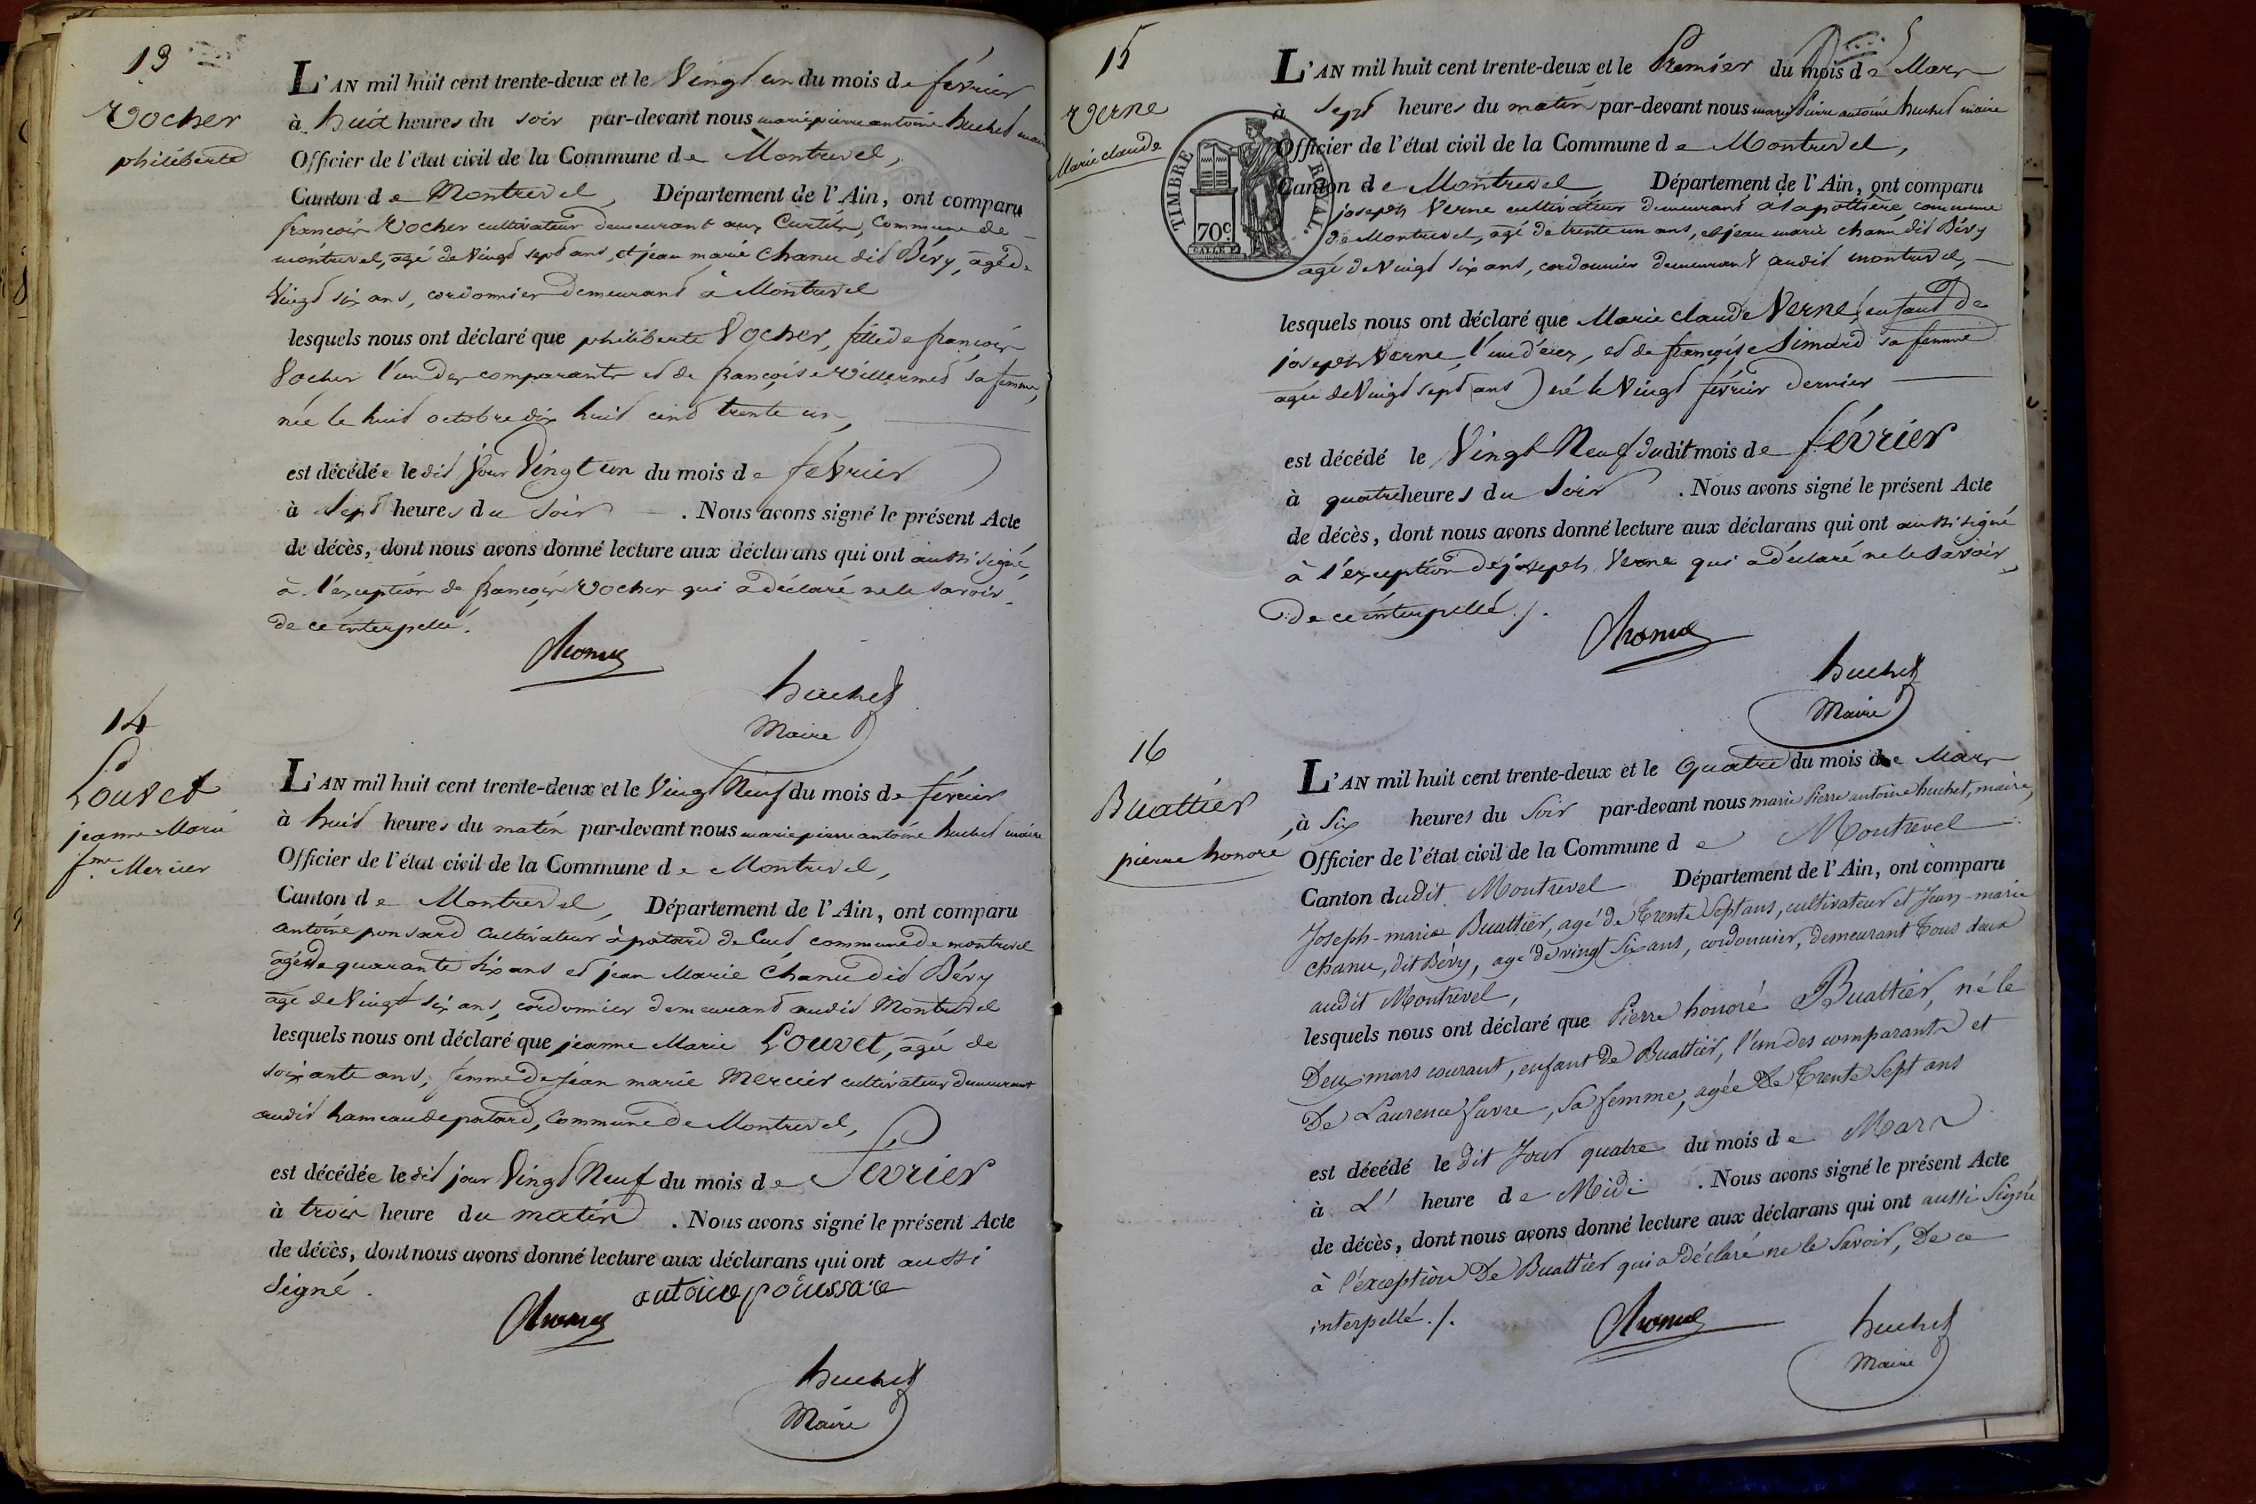 13
Vocher
philiberte
L'AN mil huit cent trente-deux et le Vingt un du mois de février
à huit heures du soir par-devant nous marie pierre antoine huchet maire
Officier de l'état civil de la Commune de Montrevel,
Canton de Montrevel, Département de l'Ain, ont comparu
françois Vocher cultivateur demeurant aux Curtils, Commune de
montrevel, agé de Vingt sept ans, et jean marie Chanu dit Bévy, agé de
Vingt six ans, cordonnier demeurant à Montrevel
lesquels nous ont déclaré que philiberte Vocher, fille de françois
Vocher l'un des comparants et de françoise Villermet sa femme,
née le huit octobre dix huit cent trente un,
est décédée le dit jour Vingt un du mois de février
à sept heures du soir. Nous avons signé le présent Acte
de décès, dont nous avons donné lecture aux déclarans qui ont aussi signé,
à l'exception de françois Vocher qui a déclaré ne le savoir,
de ce interpellé.
Chanu
huchet
Maire
14
Louvet
jeanne Marie
fme Mercier
L'AN mil huit cent trente-deux et le Vingt Neuf du mois de février
à huit heures du matin par-devant nous marie pierre antoine huchet maire
Officier de l'état civil de la Commune de Montrevel,
Canton de Montrevel, Département de l'Ain, ont comparu
antoine ponsard Cultivateur à potard de Cuet commune de montrevel
agé de quarante six ans et jean Marie Chanu dit Bévy
agé de Vingt six ans, cordonnier demeurant audit Montrevel
lesquels nous ont déclaré que jeanne Marie Louvet, agée de
soixante ans, femme de jean marie Mercier cultivateur demeurant
audit hameau de potard, Commune de Montrevel,
est décédée le dit jour Vingt Neuf du mois de février
à trois heure du matin. Nous avons signé le présent Acte
de décès, dont nous avons donné lecture aux déclarans qui ont aussi
signé.
Chanu
huchet
Maire
15
Verne
Marie claude
TIMBRE ROYAL
70c.
L'AN mil huit cent trente-deux et le Premier du mois de Mars
à sept heures du matin par-devant nous marie pierre antoine huchet maire
Officier de l'état civil de la Commune de Montrevel,
Canton de Montrevel, Département de l'Ain, ont comparu
joseph Verne cultivateur demeurant à la pottiere commune
de Montrevel, agé de trente un ans, et jean marie chanu dit Bévy
agé de Vingt six ans, cordonnier demeurant audit montrevel,
lesquels nous ont déclaré que Marie claude Verne, enfant de
joseph Verne, l'un d'eux, et de françoise Simard sa femme
agée de Vingt sept ans) né le Vingt février dernier
est décédé le Vingt Neuf dudit mois de février
à quatre heures du soir. Nous avons signé le présent Acte
de décès, dont nous avons donné lecture aux déclarans qui ont aussi signé
à l'exception de joseph Verne qui a déclaré ne le savoir,
de ce interpellé ./.
Chanu
huchet
Maire
16
Buattier
pierre honoré
L'AN mil huit cent trente-deux et le Quatre du mois de Mars
à Six heures du Soir par-devant nous marie Pierre antoine huchet, maire,
Officier de l'état civil de la Commune de Montrevel
Canton dudit Montrevel Département de l'Ain, ont comparu
Joseph-marie Buattier, agé de Trente Sept ans, cultivateur et Jean-marie
chanu, dit Bévy, agé de vingt Six ans, cordonnier, demeurant Tous deux
audit Montrevel,
lesquels nous ont déclaré que Pierre honoré Buattier, né le
Deux mars courant, enfant de Buattier, l'un des comparants et
De Laurence favre, Sa femme, agée de Trente Sept ans
est décédé le dit Jour quatre du mois de Mars
à L' heure de Midi. Nous avons signé le présent Acte
de décès, dont nous avons donné lecture aux déclarans qui ont aussi Signé
à l'exception De Buattier qui a Déclaré ne le Savoir, De ce
interpellé ./.
Chanu
huchet
Maire